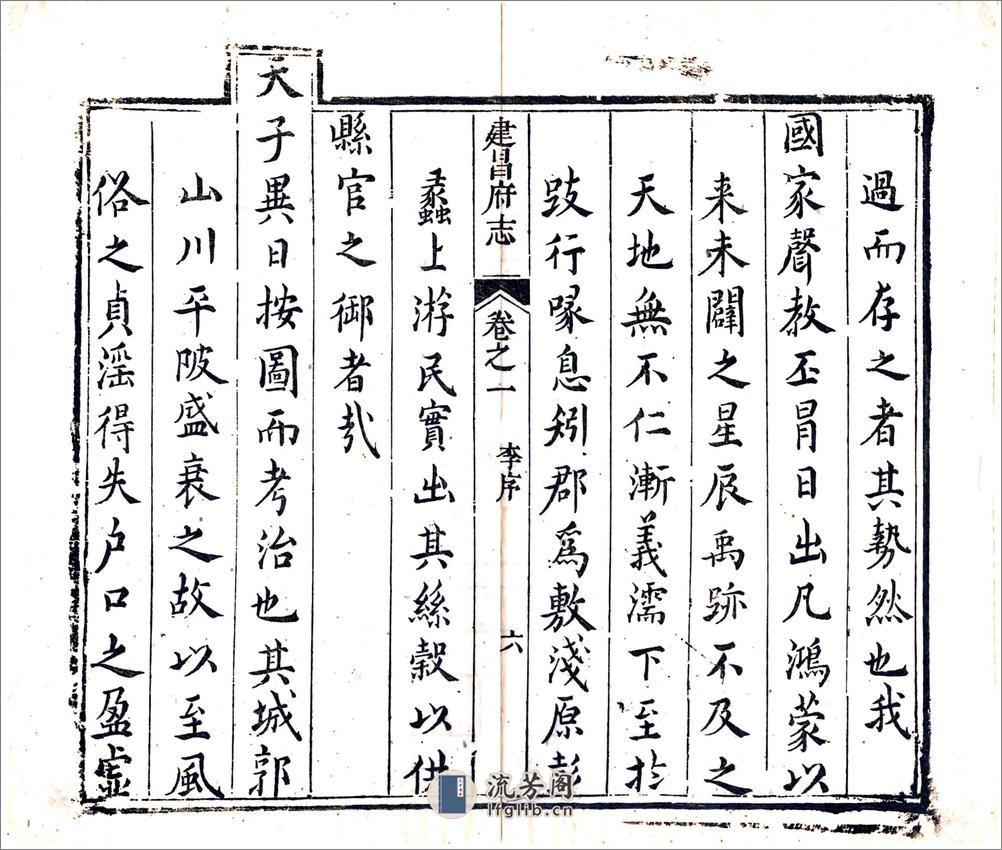 過而存之者其勢然也我
國家聲教丕冒日出凡鴻蒙以
来未闢之星辰禹跡不及之
天地無不仁漸義濡下至於
跂行喙息矧郡爲敷淺原彭
建昌府志 卷之一 李序 六
蠡上游民實出其絲穀以供
縣官之御者哉
天子異日按圖而考治也其城郭
山川平陂盛衰之故以至風
俗之貞淫得失户口之盈虛
流芳阁
lfglib.cn